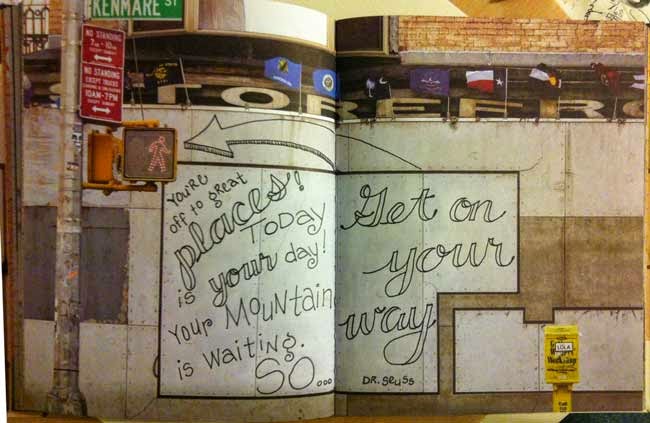 KENMARE ST
NO STANDING
7AM-10AM
EXCEPT SUNDAY
NO STANDING
EXCEPT TRUCKS
10AM-7PM
EXCEPT SUNDAY
STOREFR
You're
off to great
places!
Today
is your day!
Your Mountain
is Waiting.
So...
Get on
your
way
DR. SEUSS
LOLA